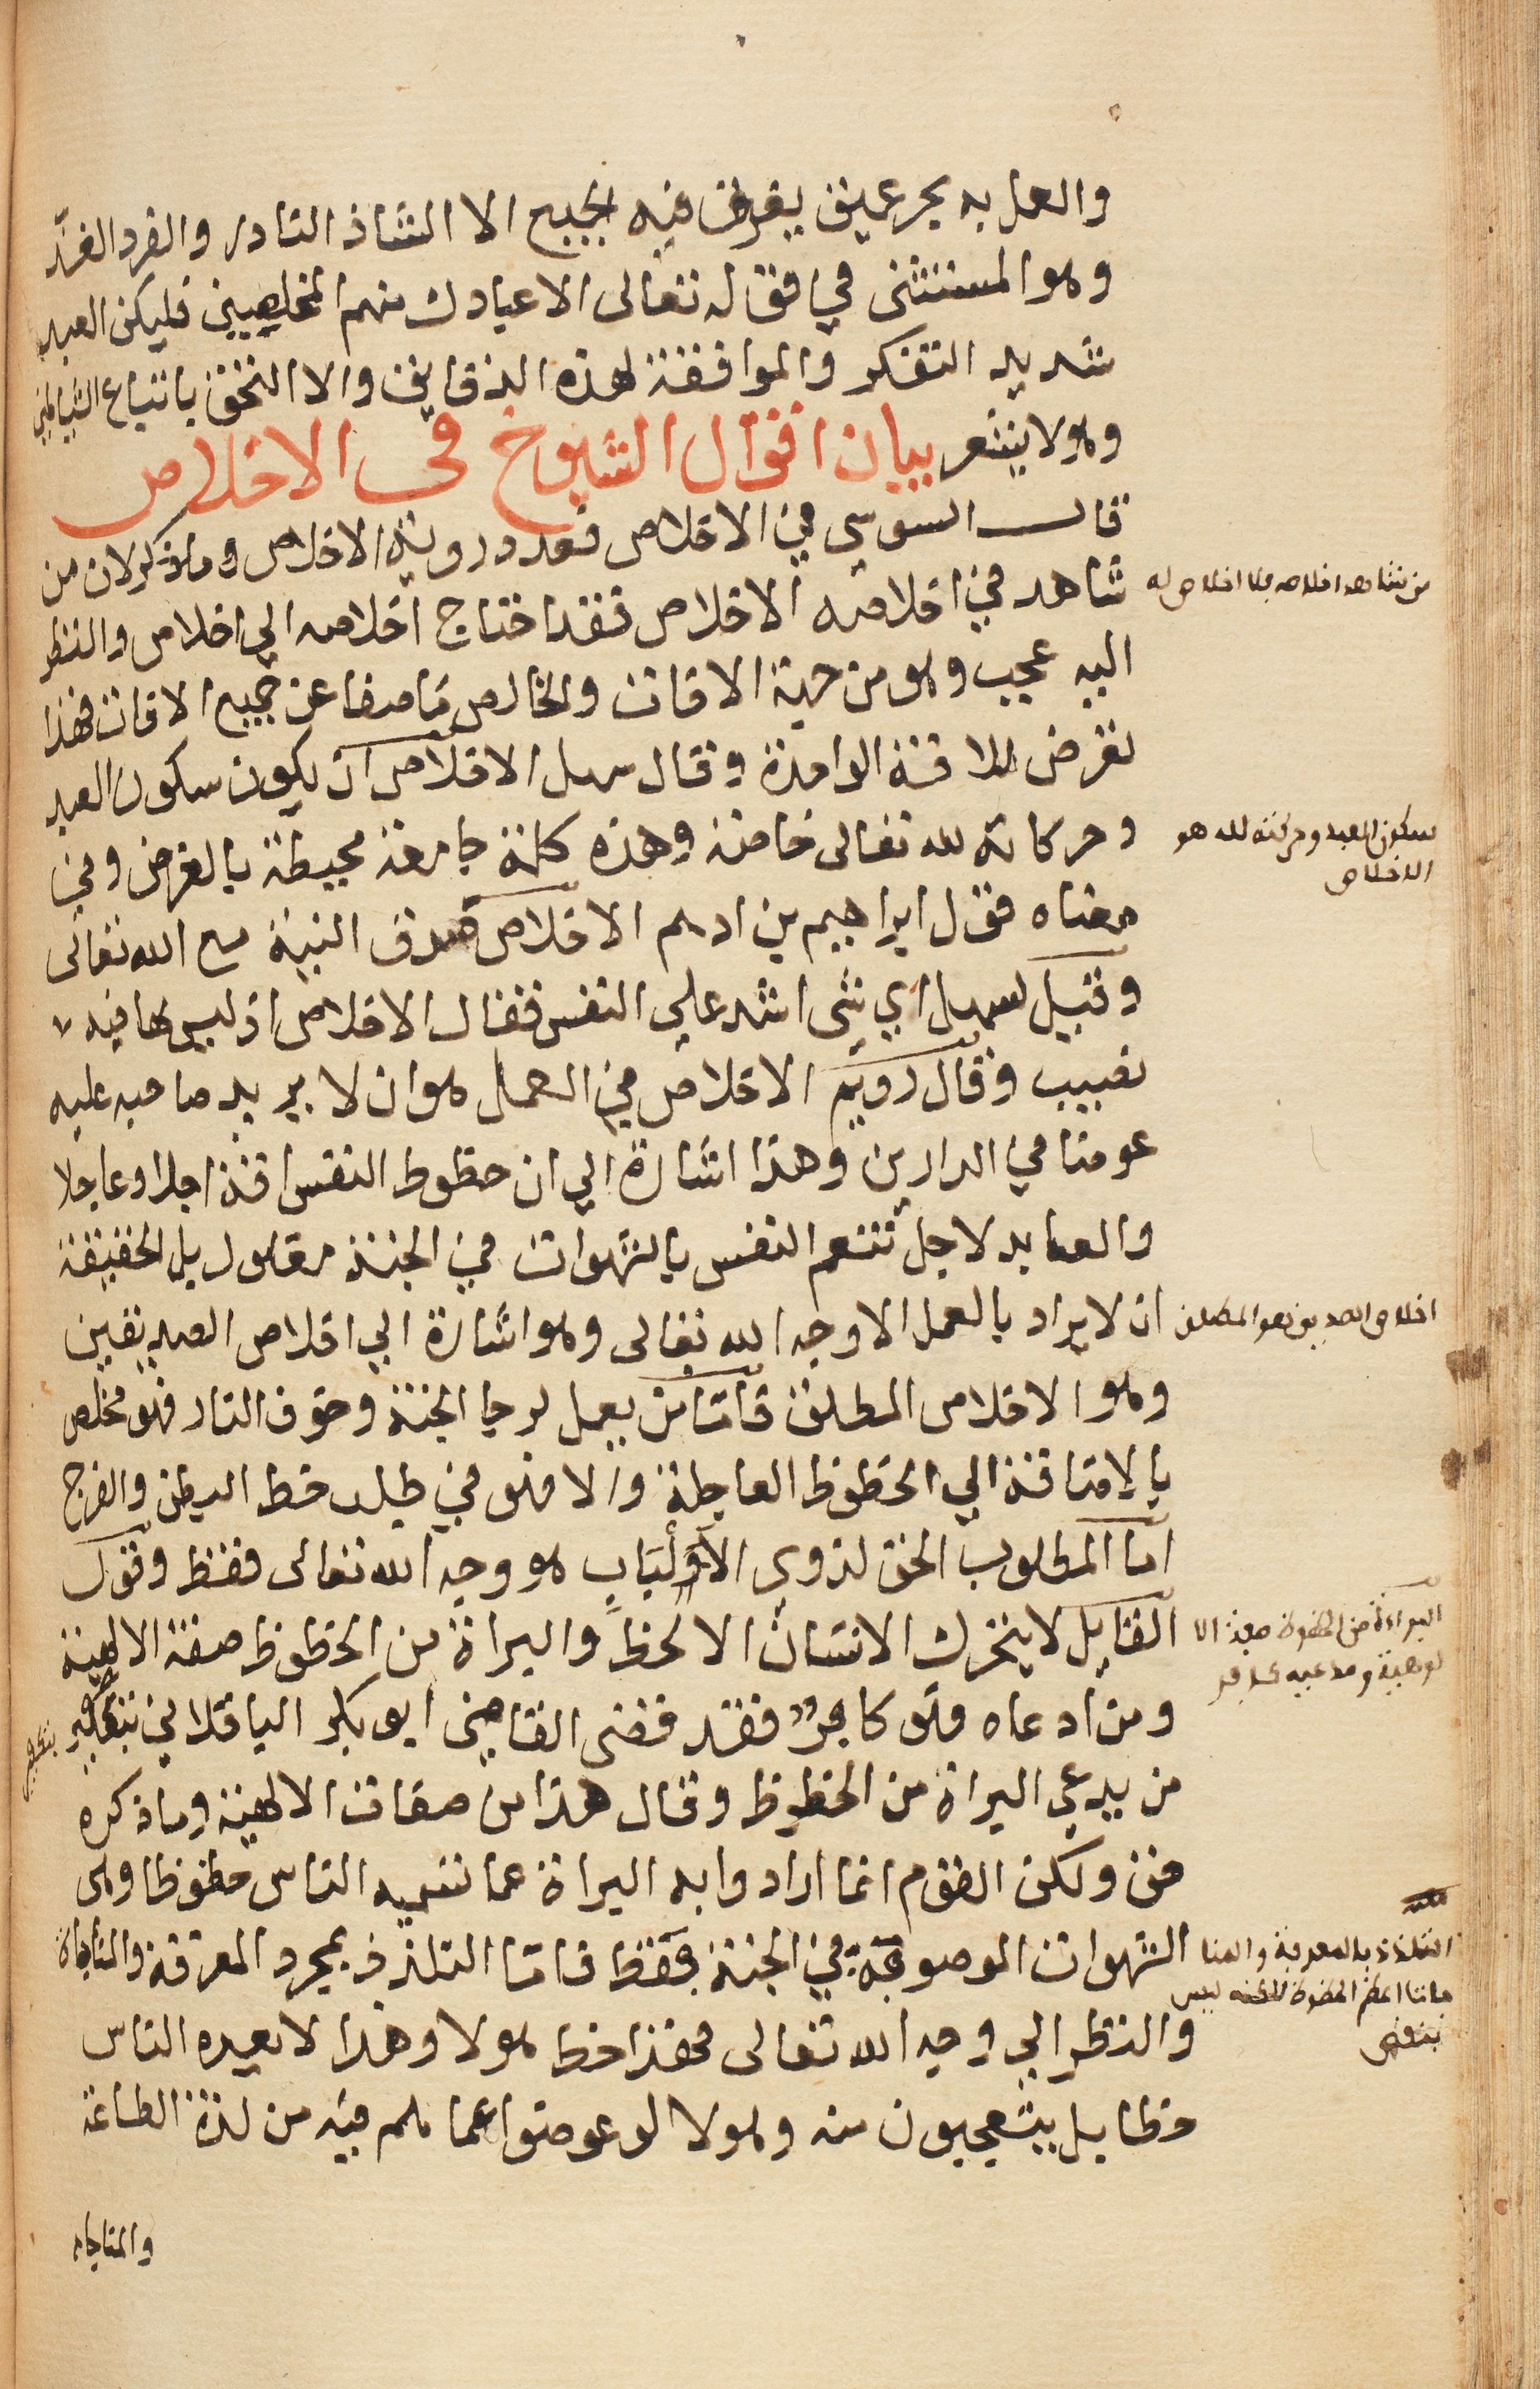 والعمل به بحر عميق يغرق فيه الجميع الا الشاذ النادر والفرد الفذ
وهو المستثنى في قوله تعالى الا عبادك منهم المخلصين فليكن العبد
شديد التفكر والموافقة لهذه الدقايق والا التحق باتباع الشياطين
وهو لا يشعر بيان اقوال الشيوخ في الاخلاص
قال السوسي في الاخلاص فقد دروية الاخلاص وما ذكر لان من
شاهد في اخلاصه الاخلاص فقد احتاج اخلاصه الي اخلاص والنظر
من شاهد اخلاصه فلا اخلاص له
اليه عجب وهو من جملة الافات والخالص ما صفا عن جميع الافات فهذا
تعرض للافة الواحدة وقال سهل الاخلاص ان يكون سكون العبد
وحركاته لله تعالى خاصة وهذه كلمة جامعة محيطة بالغرض وفي
سكون العبد وحركته لله هو
الاخلاص
معناه قول ابراهيم بن ادهم الاخلاص صدق النية مع الله تعالى
وقيل لسهل اي شى اشد علي النفس فقال الاخلاص اذ ليس لها فيه
نصيب وقال رويم الاخلاص في العمل هو ان لا يريد صاحبه عليه
عوضا في الدارين وهذا اشارة الي ان حظوظ النفس افة اجلا وعاجلا
والعابد لاجل تنعم النفس بالشهوات في الجنة معلول بل الحقيقة
ان لا يراد بالعمل الا وجه الله تعالى وهو اشارة الي اخلاص الصديقين
اخلاص الصديقين هو المطلق
وهو الاخلاص المطلق فاما من يعمل لرجا الجنة وخوف النار فهو مخلص
بالاضافة الي الحظوظ العاجلة والا فهو في طلب حظ البطن والفرج
اما المطلوب الحق لذوي الاولباب هو وجه الله تعالى فقط وقول
القايل لا يتحرك الانسان الا لحظ والبراة من الحظوظ صفة الالهية
البراءة من الحظوظ صفة الا
لوهية ومدعيه كافر
ومن ادعاه فهو كافر فقد قضى القاضي ابو بكر الباقلاني بتكفير
بتكفير
من يدعي البراة من الحظوظ وقال هذا من صفات الالهية وما ذكره
حق ولكن القوم انما ارادوا به البراة عما تسميه الناس حظوظا وهى
الشهوات الموصوفة في الجنة فقط فاما التلذذ بمجرد المعرفة والمناجاة
التلذذ بالمعرفة والمنا
جاة اعظم الحظوظ لكنه ليس
بنفسى
والنظر الي وجه الله تعالى فهذا حظ هولا وهذا لا يعده الناس
حظا بل يتعجبون منه وهولا لو عوضوا عما هم فيه من لذة الطاعة
والمناجاه